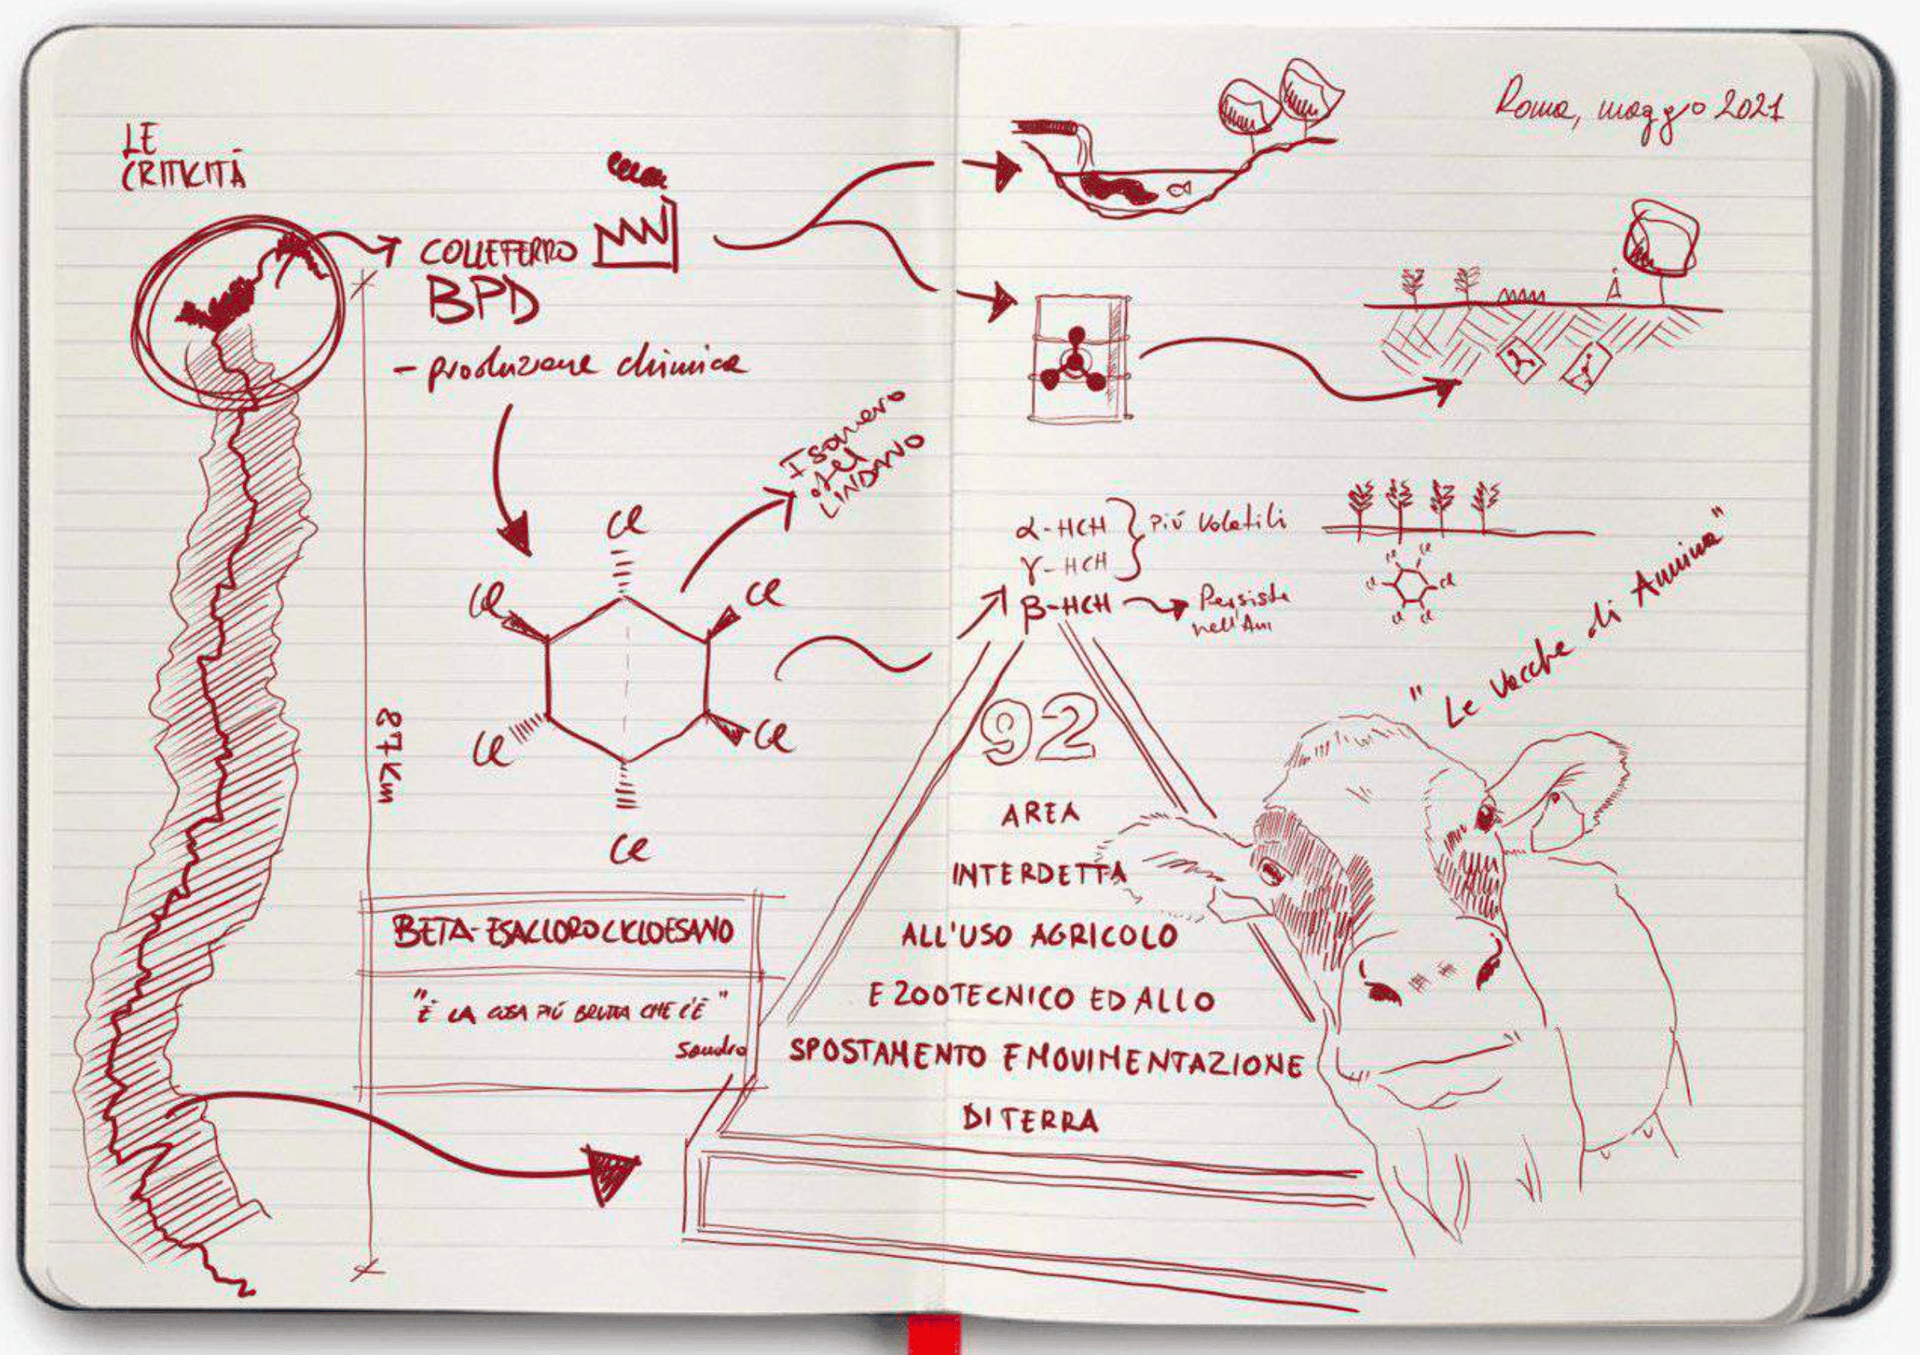 LE
CRITICITÀ
COLLEFERRO
BPD
- produzione chimica
Isomero
del
LINDANO
Cl
Cl
Cl
Cl
Cl
Cl
87 Km
BETA-ESACLOROCICLOESANO
"È LA COSA PIÚ BRUTTA CHE C'È"
Sandro
Roma, maggio 2021
α-HCH
γ-HCH
più volatili
β-HCH
Persiste
nell'Am
Cl
Cl
Cl
Cl
Cl
Cl
"Le Vacche di Annina"
92
AREA
INTERDETTA
ALL'USO AGRICOLO
E ZOOTECNICO ED ALLO
SPOSTAMENTO E MOVIMENTAZIONE
DI TERRA